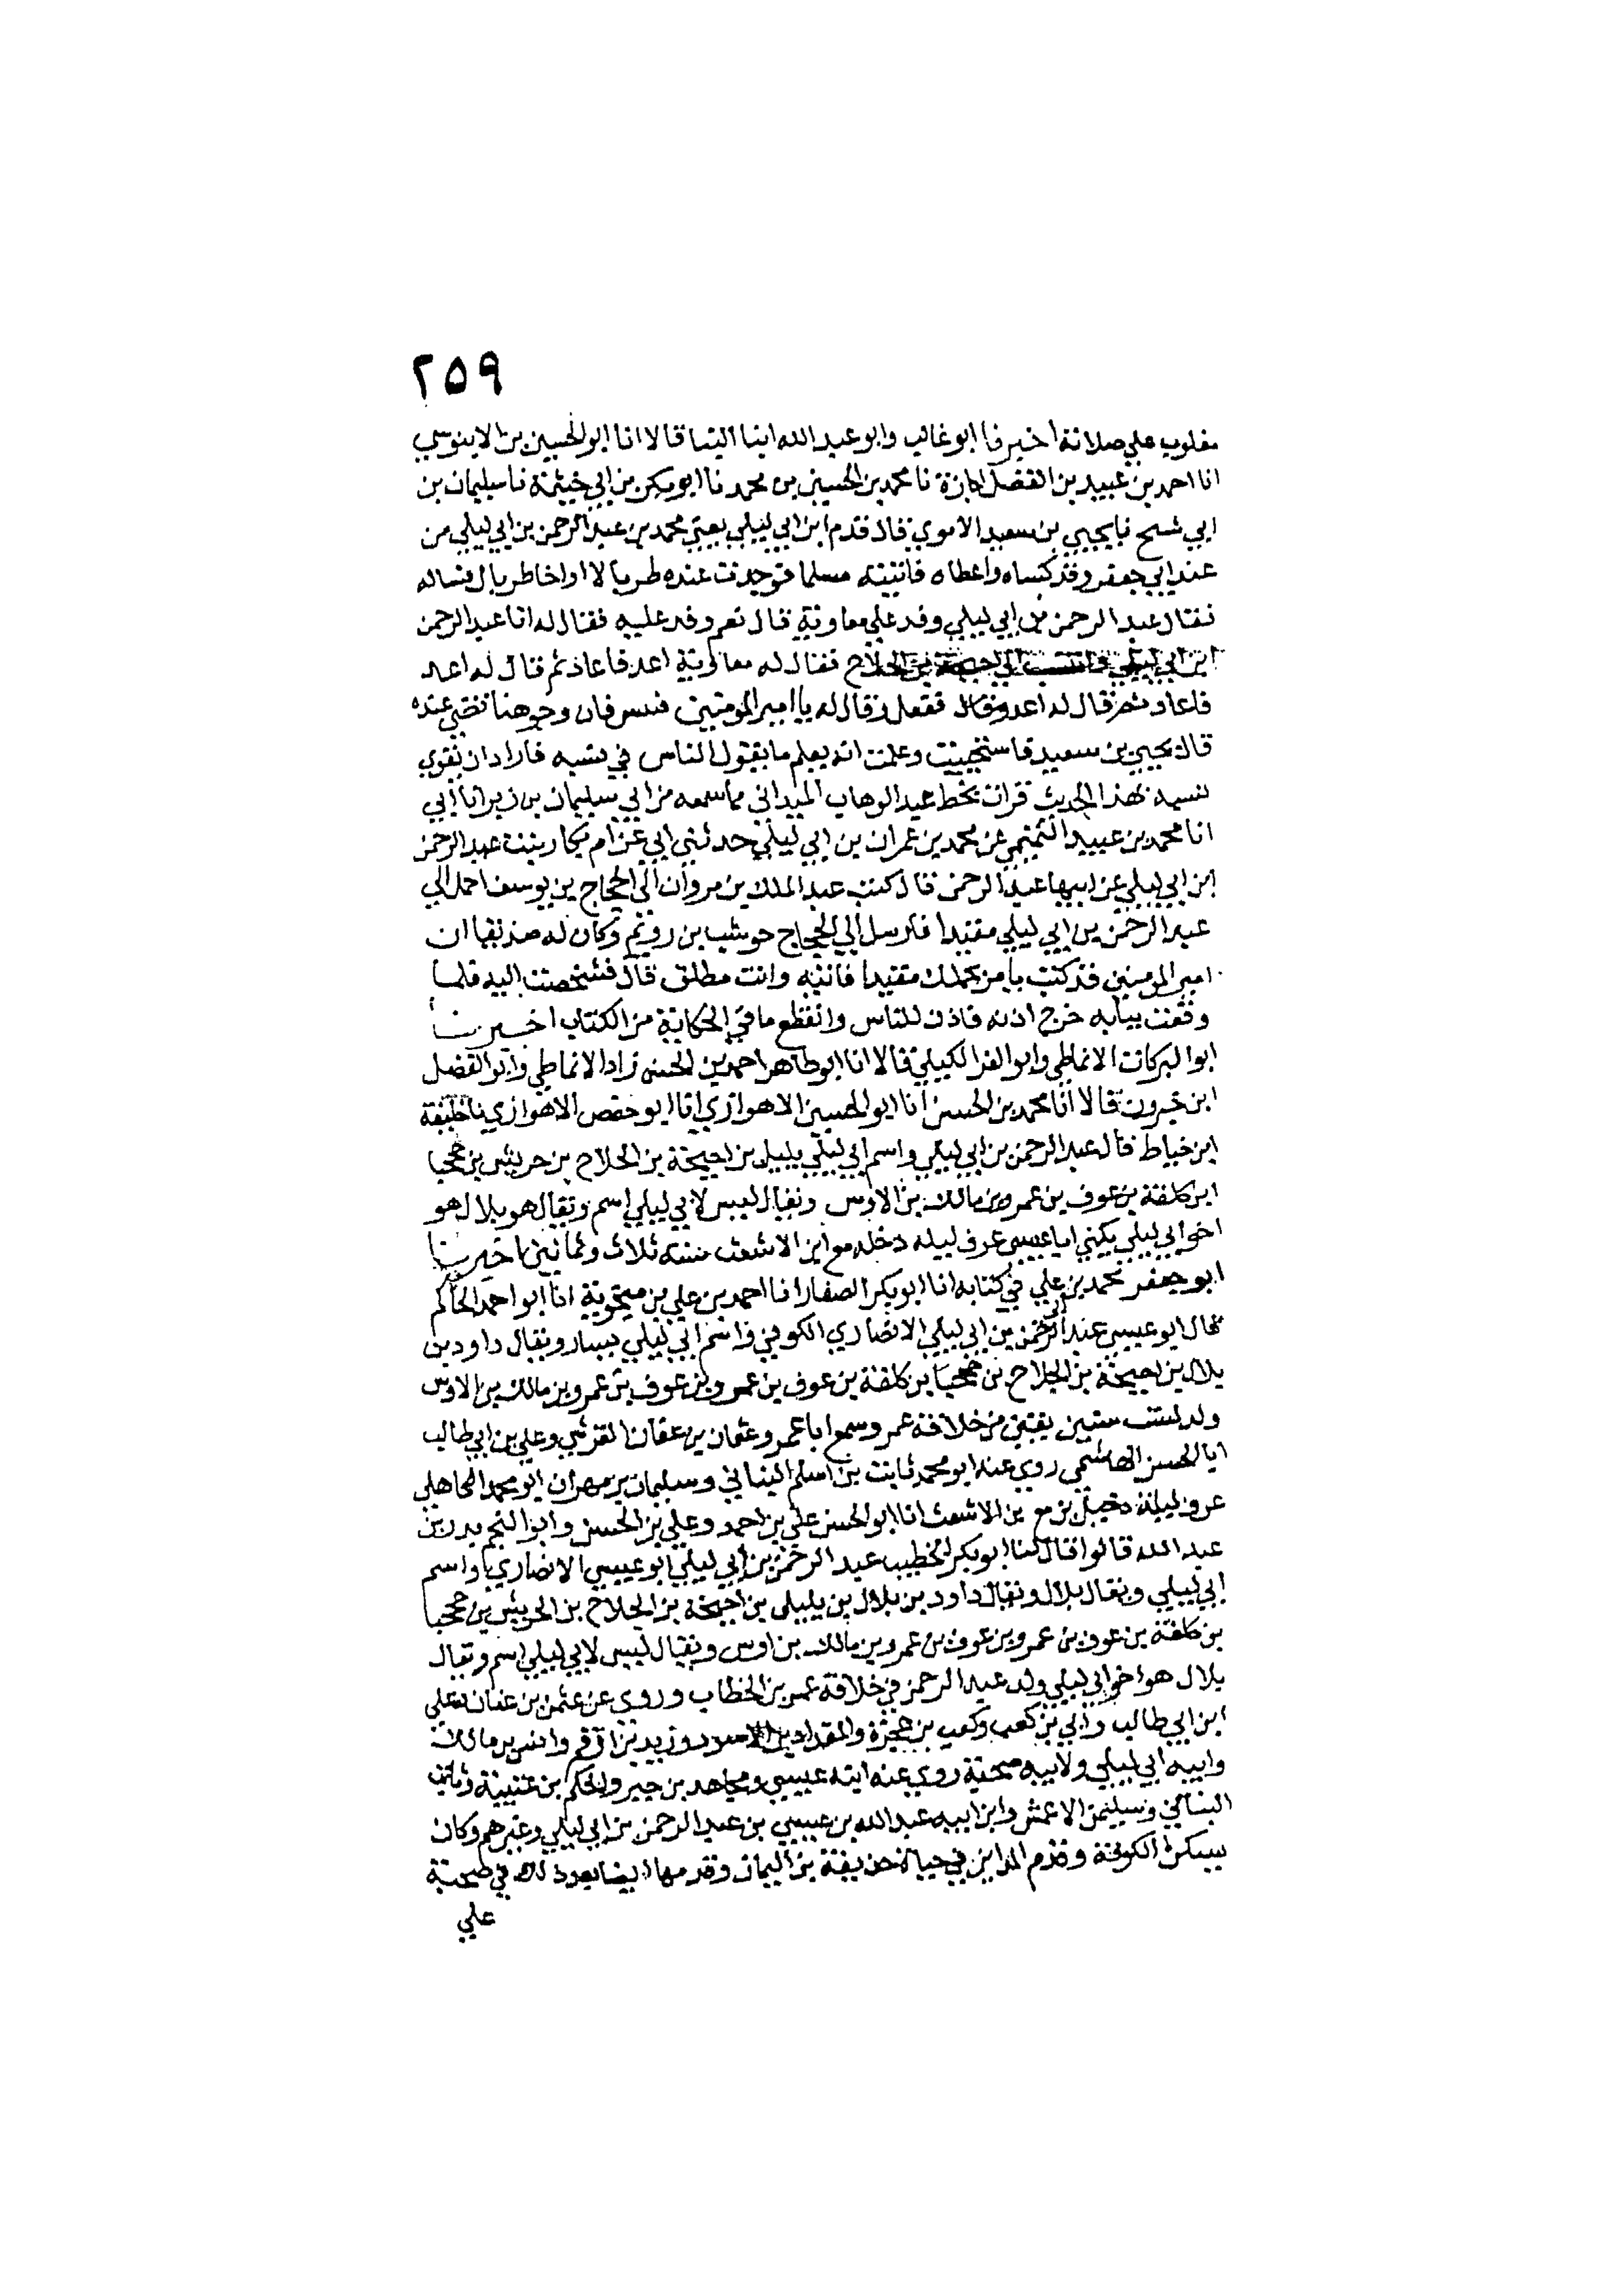 ٢٥٩
مغلوب علي صلاته اخبرنا ابو غالب وابو عبد الله ابنا البنا قالا انا ابو الحسين بن الابنوسي
انا احمد بن عبيد بن الفضل اجازة نا محمد بن الحسين بن محمد نا ابو بكر بن ابي خيثمة نا سليمان بن
ابي شيخ نا يحيي بن سعيد الاموي قال قدم ابن ابي ليلي يعني محمد بن عبد الرحمن بن ابي ليلي من
عند ابي جعفر وقد كساه واعطاه فاتيته مسلما فوجدت عنده
فقال عبد الرحمن بن ابي ليلي وفد علي معاوية قال نعم وفد عليه فقال له انا عبد الرحمن
ابن ابي ليلي فانتسب الي احيحة بن الجلاح فقال له معاوية اعد فاعاد ثم قال له اعد
فاعاد ثم قال له اعد وقال ففعل وقال له يا امير المومنين
قال يحيي بن سعيد فاستحييت وعلمت انه يعلم ما يقول الناس في نسبه فاراد ان يقوي
نسبه بهذا الحديث قرات بخط عبد الوهاب الميداني مما سمعه من ابي سليمان بن زبر انا ابي
انا محمد بن عبيد التميمي عن محمد بن عمران بن ابي ليلي حدثني ابي عن ام بكار بنت عبد الرحمن
ابن ابي ليلي عن ابيها عبد الرحمن قال كتب عبد الملك بن مروان الي الحجاج بن يوسف احمل الي
عبد الرحمن بن ابي ليلي مقيدا فارسل الي الحجاج حوشب بن رويم وكان له صديقا ان
امير المومنين قد كتب يامر بحملك مقيدا فاتيه وانت مطلق قال فشخصت اليه فلما
وقفت ببابه خرج اذنه فاذن للناس وانقطع ما في الحكاية من الكتاب اخبرنا
ابو البركات الانماطي وابو العز الكيلي قالا انا ابو طاهر احمد بن الحسن زاد الانماطي وابو الفضل
ابن خيرون قالا انا محمد بن الحسن انا ابو الحسين الاهوازي انا ابو حفص الاهوازي نا خليفة
ابن خياط قال عبد الرحمن بن ابي ليلي واسم ابي ليلي يليل بن احيحة بن الجلاح بن حريش بن جحجبا
ابن كلفة بن عوف بن عمرو بن مالك بن الاوس ويقال ليس لابي ليلي اسم ويقال هو بلال هو
اخو ابي ليلي يكني ابا عيسي غرق ليله دجله مع ابن الاشعث سنه ثلاث وثمانين اخبرنا
ابو جعفر محمد بن علي في كتابه انا ابو بكر الصفار انا احمد بن علي بن منجوية انا ابو احمد الحاكم
قال ابو عيسي عبد الرحمن بن ابي ليلي الانصاري الكوفي واسم ابي ليلي يسار ويقال داود بن
بلال بن احيحة بن الجلاح بن جحجبا بن كلفة بن عوف بن عمرو بن عوف بن عمرو بن مالك بن الاوس
ولد لست سنين بقين من خلافة عمر وسمع ابا عمرو عثمان بن عفان القرشي وعلي بن ابي طالب
ابا الحسن الهاشمي روي عنه ابو محمد ثابت بن اسلم البناني وسليمان بن مهران ابو محمد الكاهلي
غرق ليلة دجيل مع بن الاشعث انا ابو الحسن علي بن احمد وعلي بن الحسن وابو النجم بدر بن
عبد الله قالوا قال لنا ابو بكر الخطيب عبد الرحمن بن ابي ليلي ابو عيسي الانصاري واسم
ابي ليلي ويقال بلال ويقال داود بن بلال بن بليل بن احيحة بن الجلاح بن الحريش بن جحجبا
بن كلفة بن عوف بن عمرو بن عوف بن عمرو بن مالك بن اوس ويقال ليس لابي ليلي اسم ويقال
بلال هو اخو ابي ليلي ولد عبد الرحمن في خلافة عمر بن الخطاب وروي عن عثمن بن عفان وعلي
ابن ابي طالب وابي بن كعب وكعب بن عجرة والمقداد بن الاسود وزيد بن ارقم وانس بن مالك
وابيه ابي ليلي ولابيه صحبة روي عنه ابنه عيسي ومجاهد بن جبر والحكم بن عتيبة وثابت
البناني وسليمن الاعمش وابن ابيه عبد الله بن عيسي بن عبد الرحمن بن ابي ليلي وغيرهم وكان
يسكن الكوفة وقدم المداين في حياة حذيفة بن اليمان وقدمها ايضا بعد ذلك في صحبة
علي